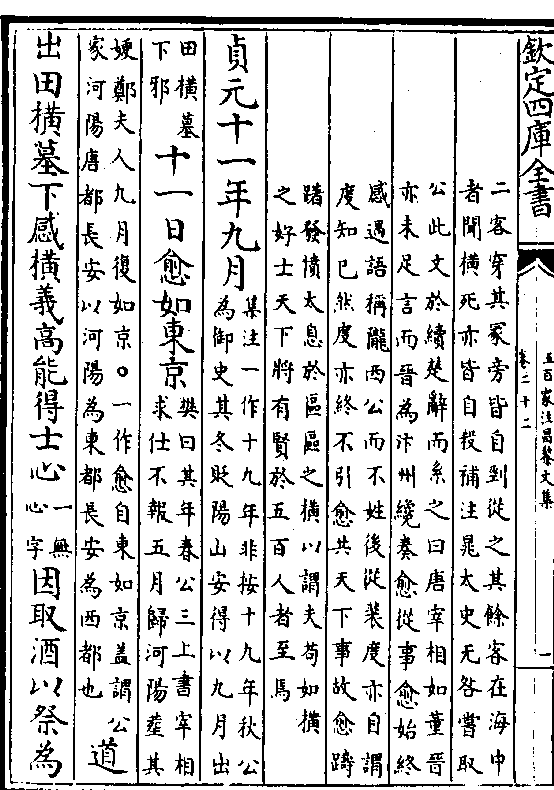 欽定四庫全書
五百家注昌黎文集
卷二十二
一
二客穿其冢旁皆自剄從之其餘客在海中
者聞横死亦皆自殺補注晁太史无咎嘗取
公此文於續楚辭而系之曰唐宰相如董晉
亦未足言而晉為汴州纔奏愈從事愈始終
感遇語稱隴西公而不姓後從裴度亦自謂
度知已然度亦終不引愈共天下事故愈躊
躇發憤太息於區區之横以謂夫苟如横
之好士天下將有賢於五百人者至焉
貞元十一年九月集注一作十九年非按十九年秋公為御史其冬貶陽山安得以九月出
田横墓下邪十一日愈如東京樊曰其年春公三上書宰相求仕不報五月歸河陽塟其
㛐鄭夫人九月復如京。一作愈自東如京盖謂公家河陽唐都長安以河陽為東都長安為西都也道
出田横墓下感横義高能得士心一無心字因取酒以祭為